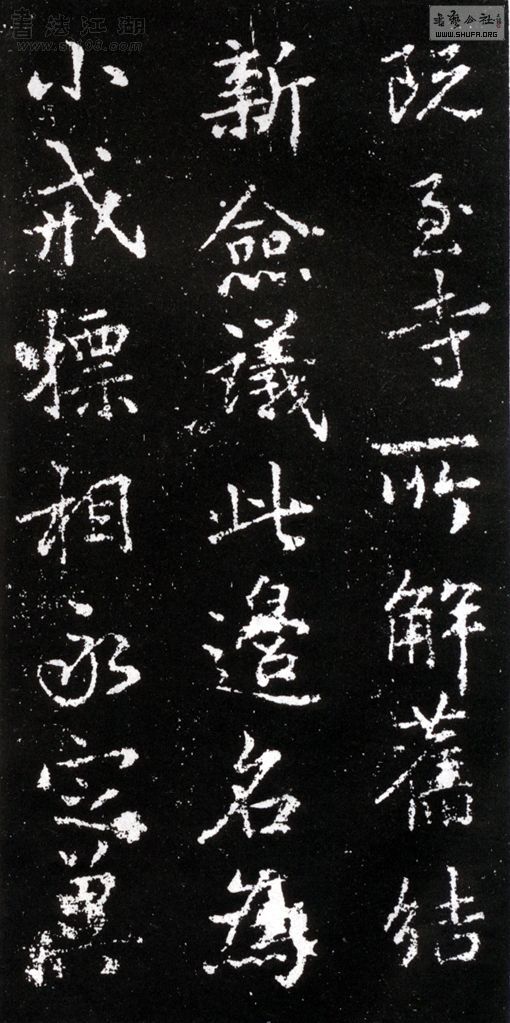 既至寺所解舊結
新僉議此邊名為
小戒摽相永定冀
書法江湖
www.sf108.com
書藝公社
WWW.SHUFA.ORG